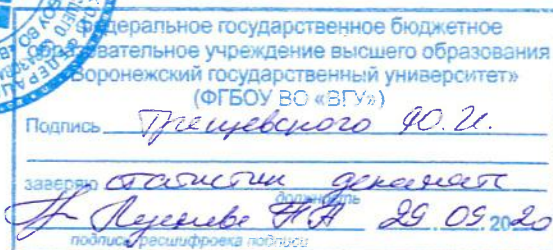 Федеральное государственное бюджетное
образовательное учреждение высшего образования
«Воронежский государственный университет»
(ФГБОУ ВО «ВГУ»)
Подпись Трещевского Ю.И.
заверяю статистик деканата
должность
29.09.2020
подпись, расшифровка подписи